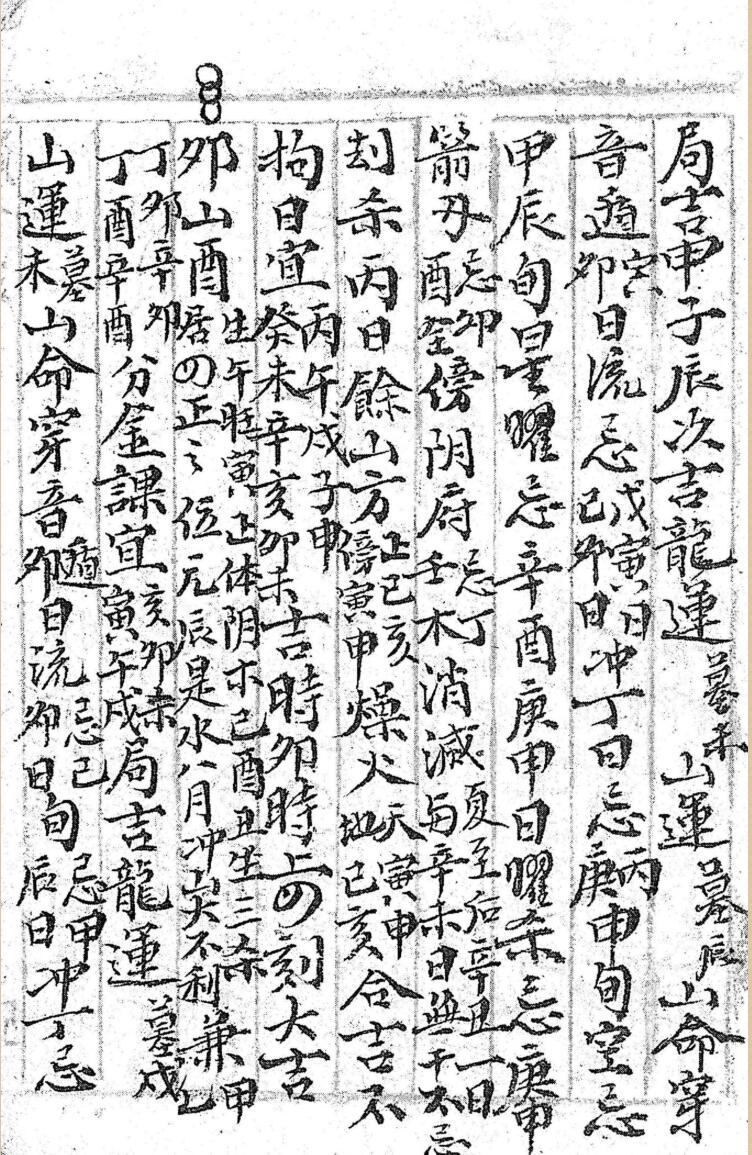 局吉申子辰次吉龍運墓未山運墓辰山命穿
音遁寅卯日流忌戊寅日己卯日冲丁日忌丙庚申旬空忌
甲辰旬星曜忌辛酉庚申日曜杀忌庚申
箭刃忌卯酉全傍阴府忌丁壬木消滅夏至后辛丑一日与辛未日無干不忌
刦杀丙日餘山方正巳亥傍寅申燥火天寅申地巳亥合吉不
拘日宜丙午戌子申癸未辛亥卯未吉時卯時上四刻大吉
卯山酉生午旺寅正体阴木己酉丑生三杀居四正之位冗辰是水八月冲山大不利兼甲乙
丁卯辛卯丁酉辛酉分金課宜亥卯未寅午戌局吉龍運墓戌
山運墓未山命穿音遁卯日流忌己卯日旬忌甲后日冲丁忌